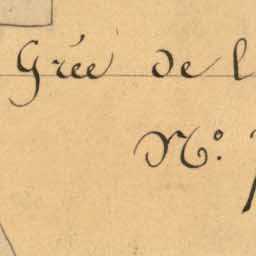 Grée de l
N°.